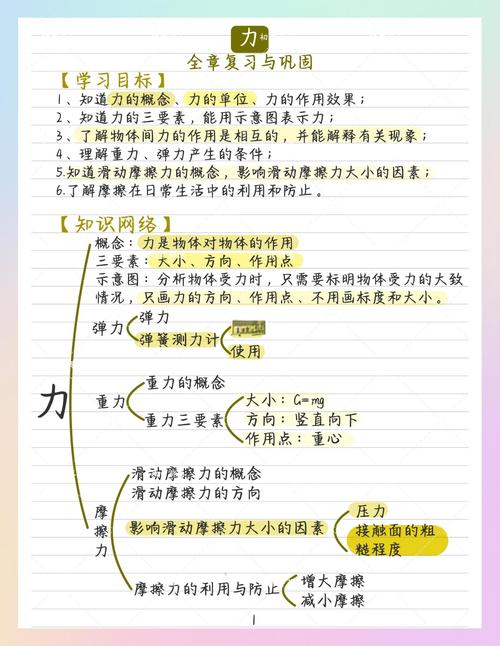 力 初
全章复习与巩固
【学习目标】
1、知道力的概念、力的单位、力的作用效果；
2、知道力的三要素，能用示意图表示力；
3、了解物体间力的作用是相互的，并能解释有关现象；
4、理解重力、弹力产生的条件；
5.知道滑动摩擦力的概念，影响滑动摩擦力大小的因素；
6.了解摩擦在日常生活中的利用和防止。
【知识网络】
概念：力是物体对物体的作用
三要素：大小、方向、作用点
示意图：分析物体受力时，只需要标明物体受力的大致
情况，只画力的方向、作用点、不用画标度和大小。
弹力
弹力
弹簧测力计
使用
力
重力
重力的概念
重力三要素
大小：G=mg
方向：竖直向下
作用点：重心
摩擦力
滑动摩擦力的概念
滑动摩擦力的方向
影响滑动摩擦力大小的因素
压力
接触面的粗
糙程度
摩擦力的利用与防止
增大摩擦
减小摩擦
1